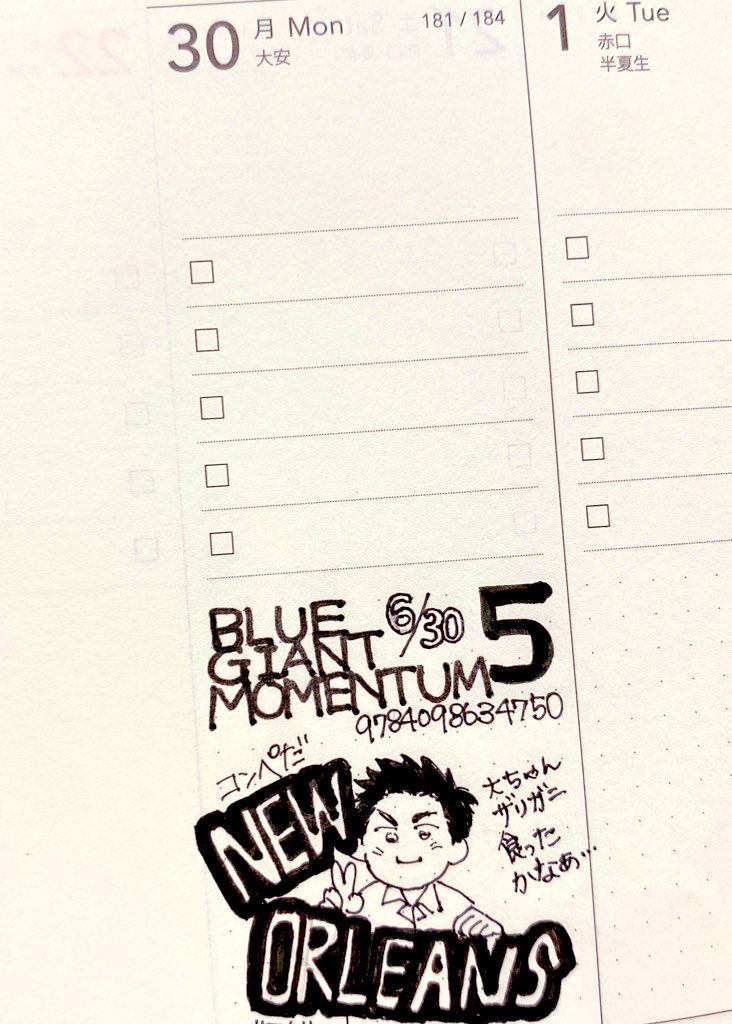 30 月 Mon 181 / 184
大安
1 火 Tue
赤口
半夏生
BLUE
GIANT
MOMENTUM
6/30
5
9784098634750
コンペだ
NEW
ORLEANS
大ちゃん
ザリガニ
食った
かなぁ…